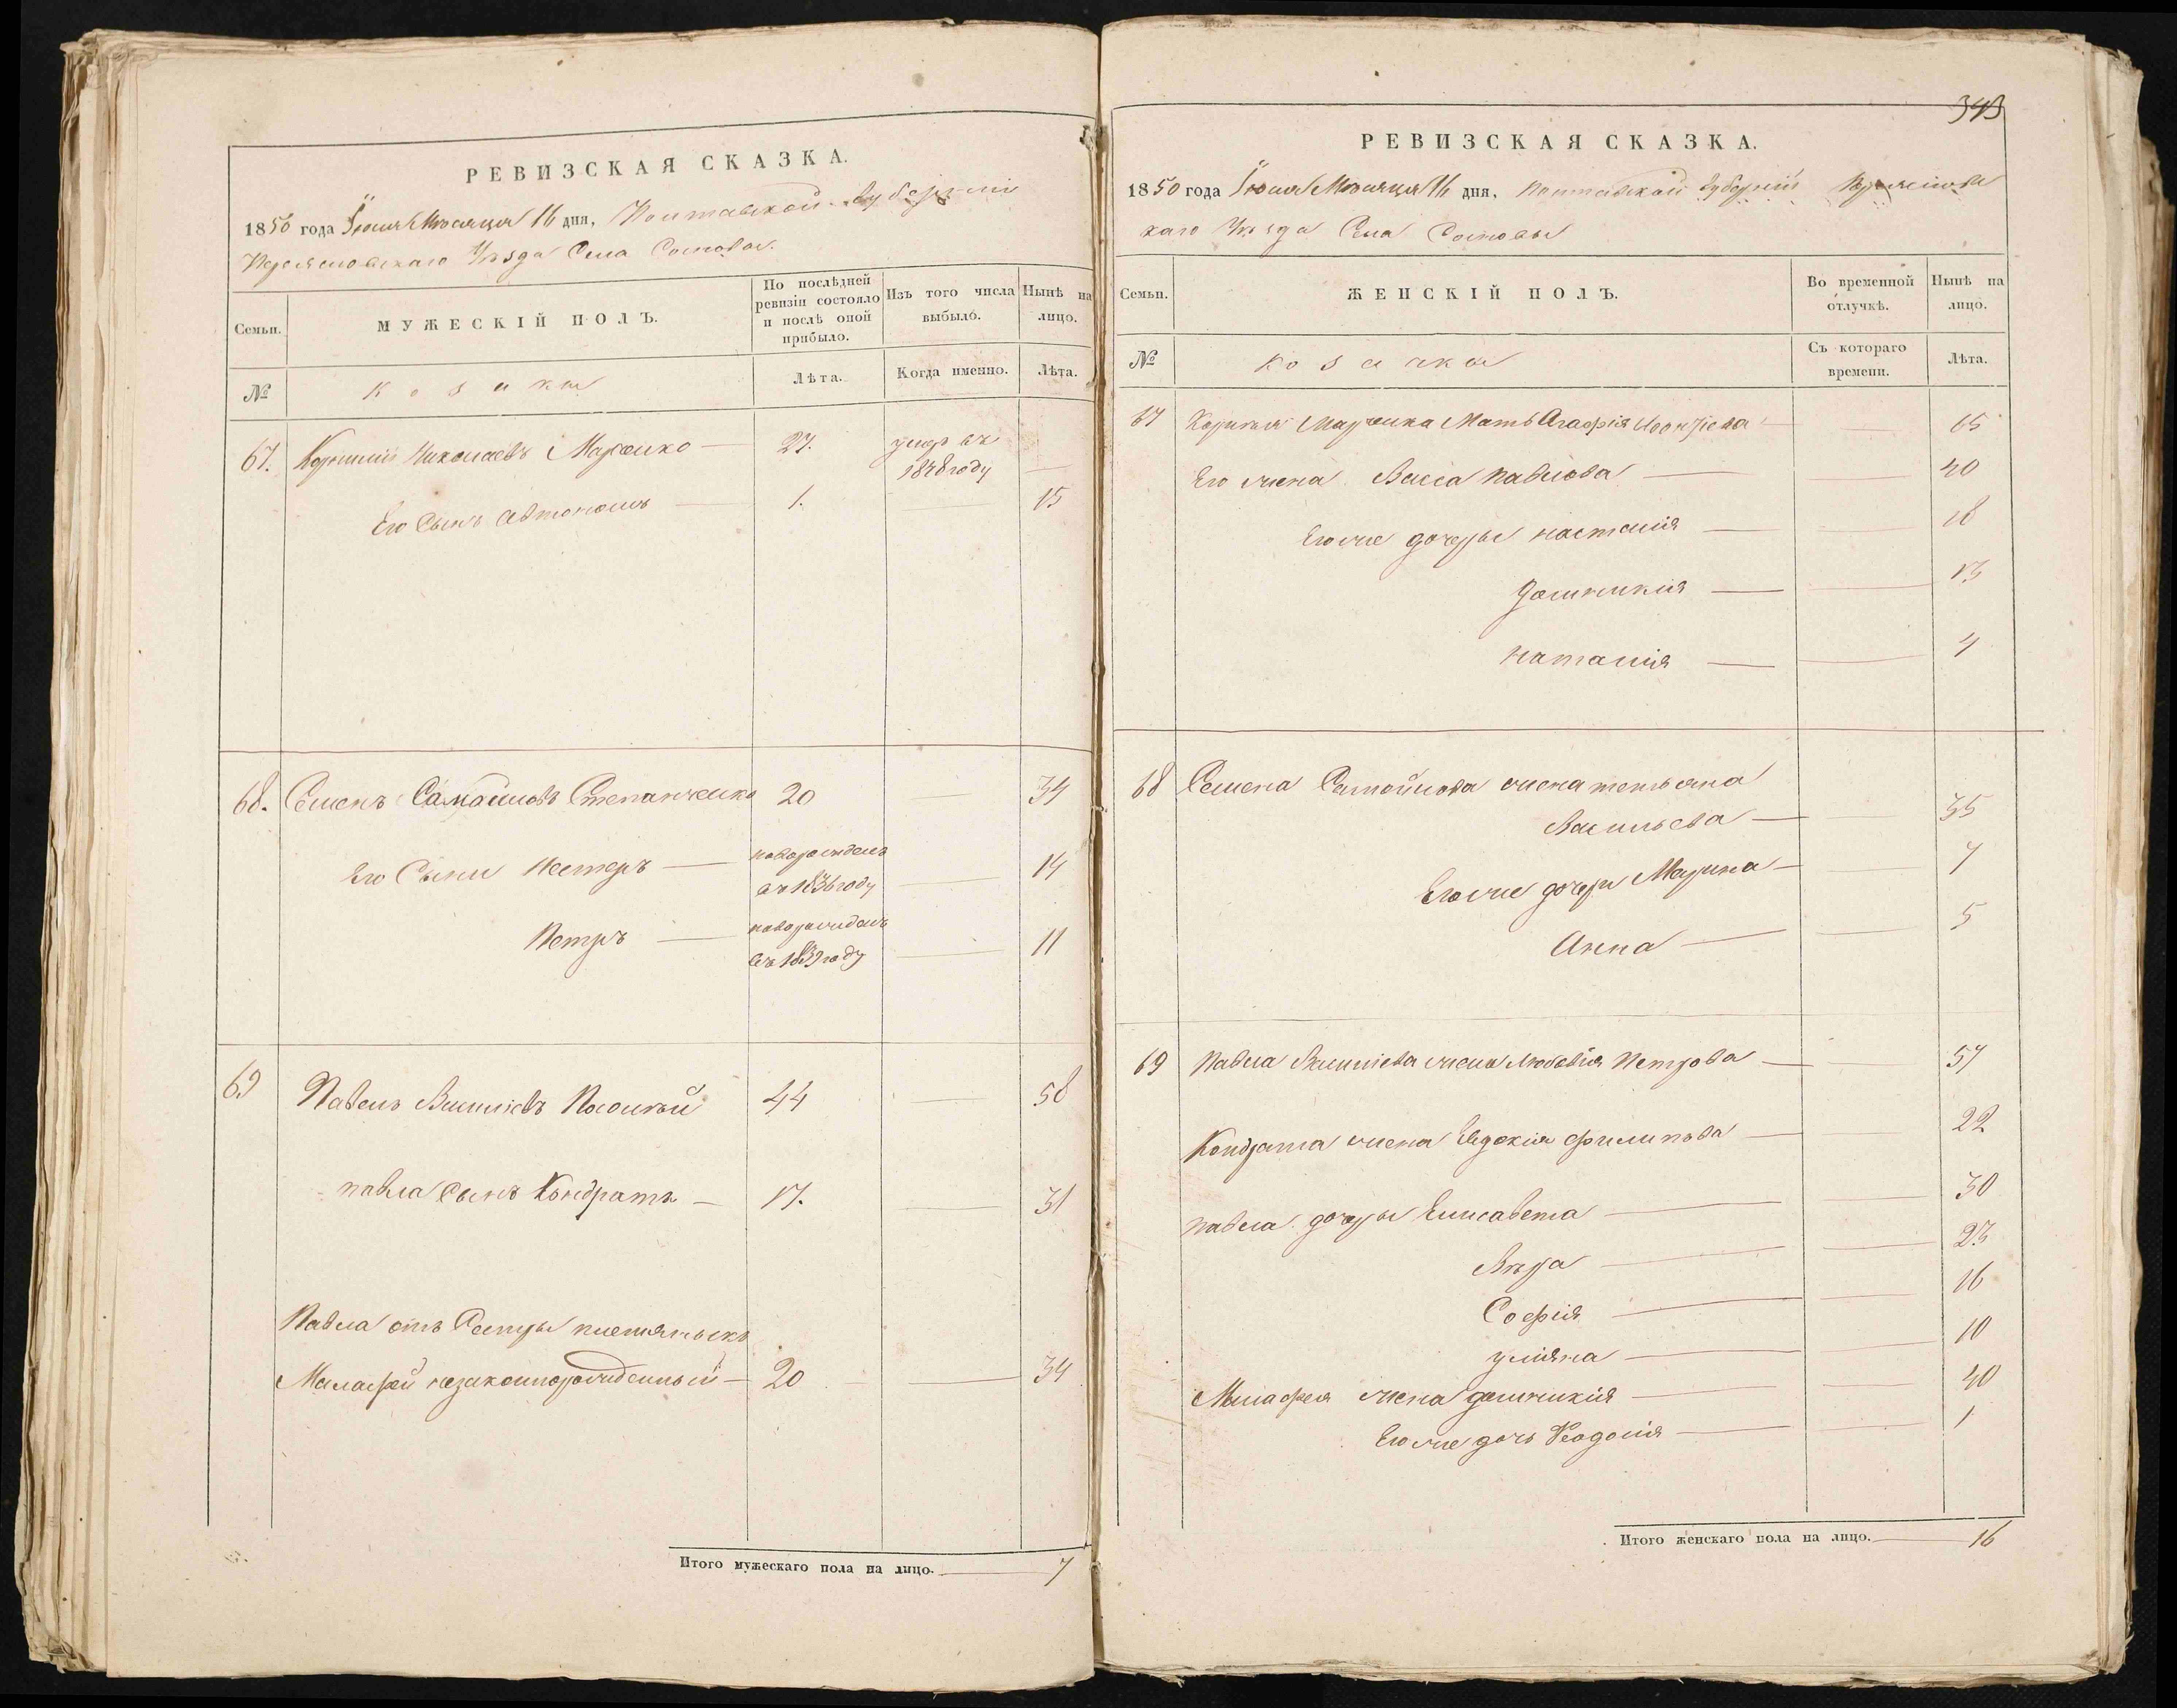 РЕВИЗСКАЯ СКАЗКА.
1850 года Іюня Мѣсяца 16 дня, Полтавской губерніи
Переясловскаго Уѣзда Села Сомовки
Семьи.
МУЖЕСКІЙ ПОЛЪ.
По послѣдней ревизіи состояло и послѣ оной прибыло.
Изъ того числа выбыло.
Нынѣ на лицо.
№
козаки
Лѣта.
Когда именно.
Лѣта.
67. Корнилій Николаевъ Марченко 27. умер въ 1848 году
Его Сынъ Автономъ 1. 15
68. Семенъ Самойловъ Степанченко 20 34
Его Сыни Нестеръ новорожденъ въ 1836 году 14
Петръ новорожденъ въ 1839 году 11
69 Павелъ Василіевъ 44 58
павла Сынъ Кондратъ 17. 31
Павла отъ Сестры племянникъ
Малафей незаконнорожденный 20 34
Итого мужескаго пола на лицо. 7
343
РЕВИЗСКАЯ СКАЗКА.
1850 года Іюня Мѣсяца 16 дня, Полтавской губерніи Переяслов
скаго Уѣзда Села
Семьи.
ЖЕНСКІЙ ПОЛЪ.
Во временной отлучкѣ.
Нынѣ на лицо.
№
козачки
Съ котораго времени.
Лѣта.
67 Корнилія Марченка Мать Агафія 65
Его жена Васса павлова 40
Его же дочеры настасія 18
домникія 13
наталія 4
68 Семена Самойлова жена татьяна
Васильева 35
Его же дочери Марина 7
Анна 5
69 Павла Василіева жена Любовія Петрова 57
Кондрата жена Евдокія филипова 22
павла дочеры Елисавета 30
Вѣра 23
Софія 16
уліяна 10
Малафея жена домникія 40
Его же дочь Ѳеодосія 1
Итого женскаго пола на лицо. 16